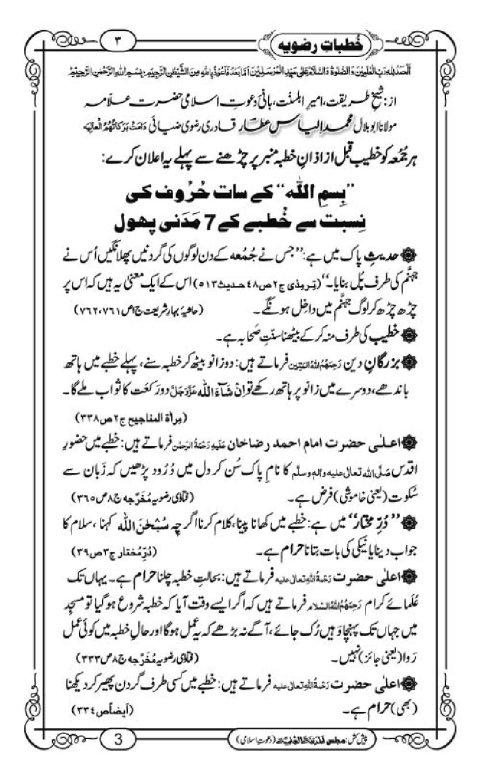 ۳
خطباتِ رضویہ
اَلْحَمْدُ لِلّٰہِ رَبِّ الْعٰلَمِیْنَ وَالصَّلٰوۃُ وَالسَّلَامُ عَلٰی سَیِّدِ الْمُرْسَلِیْنَ اَمَّا بَعْدُ فَاَعُوْذُ بِاللّٰہِ مِنَ الشَّیْطٰنِ الرَّجِیْمِ بِسْمِ اللّٰہِ الرَّحْمٰنِ الرَّحِیْمِ
از: شیخِ طریقت، امیرِ اہلسنت، بانیٔ دعوتِ اسلامی حضرت علامہ
مولانا ابو بلال محمد الیاس عطار قادری رضوی ضیائی دَامَتْ بَرَکَاتُہُمُ الْعَالِیَہ
ہر جُمُعہ کو خطیب قبل از اذانِ خطبہ منبر پر چڑھنے سے پہلے یہ اعلان کرے:
”بِسمِ اللّٰہ“ کے سات حُرُوف کی
نِسبت سے خُطبے کے 7 مَدَنی پھول
حدیثِ پاک میں ہے: ”جس نے جُمُعہ کے دن لوگوں کی گردنیں پھلانگیں اُس نے
جہنَّم کی طرف پُل بنایا۔“ (تِرمِذی ج۲ ص۴۸ حدیث ۵۱۳) اس کے ایک معنیٰ یہ ہیں کہ اس پر
چڑھ چڑھ کر لوگ جہنَّم میں داخِل ہونگے۔ (حاشیۂ بہارِ شریعت ج۱ص۷۶۱،۷۶۲)
خطیب کی طرف منہ کر کے بیٹھنا سنّتِ صَحابہ ہے۔
بُزُرگانِ دین رَحِمَہُمُ اللّٰہُ الْمُبِیْن فرماتے ہیں: دو زانو بیٹھ کر خطبہ سنے، پہلے خطبے میں ہاتھ
باندھے، دوسرے میں زانو پر ہاتھ رکھے تو اِنْ شَآءَ اللّٰہ عَزَّوَجَلَّ دو رَکعَت کا ثواب ملے گا۔
(مِراٰۃُ المناجیح ج۲ص۳۳۸)
اعلٰی حضرت امام احمد رضاخان عَلَیْہِ رَحْمَۃُ الرَّحْمٰن فرماتے ہیں: خطبے میں حضورِ
اقدس صَلَّی اللّٰہُ تَعَالٰی عَلَیْہِ وَاٰلِہٖ وَسَلَّم کا نامِ پاک سُن کر دل میں دُرُود پڑھیں کہ زَبان سے
سُکوت (یعنی خاموشی) فرض ہے۔ (فتاوٰی رضویہ مُخَرَّجہ ج۸ص۳۶۵)
”دُرِّ مختار“ میں ہے: خطبے میں کھانا پینا، کلام کرنا اگرچہ سُبْحٰنَ اللّٰہ کہنا، سلام کا
جواب دینا یا نیکی کی بات بتانا حرام ہے۔ (دُرِّمُختار ج۳ص۳۹)
اعلٰی حضرت رَحْمَۃُ اللّٰہِ تعالٰی علیہ فرماتے ہیں: بحالتِ خطبہ چلنا حرام ہے۔ یہاں تک
عُلَمائے کرام رَحِمَہُمُ اللّٰہُ السَّلَام فرماتے ہیں کہ اگر ایسے وقت آیا کہ خطبہ شروع ہو گیا تو مسجِد
میں جہاں تک پہنچا وَہیں رُک جائے، آگے نہ بڑھے کہ یہ عمل ہوگا اور حالِ خطبہ میں کوئی عمل
رَوا (یعنی جائز) نہیں۔ (فتاوٰی رضویہ مُخَرَّجہ ج۸ص۳۳۳)
اعلٰی حضرت رَحْمَۃُ اللّٰہِ تعالٰی علیہ فرماتے ہیں: خطبے میں کسی طرف گردن پھیر کر دیکھنا
(بھی) حرام ہے۔ (اَیضاًص۳۳۴)
پیش کش: مجلس (دعوتِ اسلامی)
3